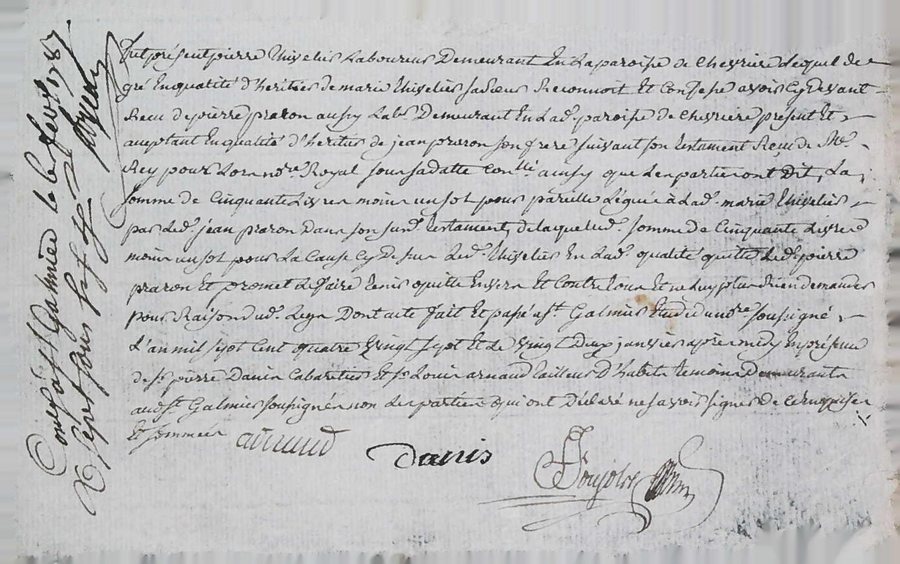 fut présent pierre thivelier Laboureur Demeurant En La paroisse de Chevriere Lequel de
gré En qualité d'heritier de marie thivelier sa sœur Reconnoit Et Confesse avoir Cy devant
Receu de pierre prazon aussy Lab.r Demeurant En Lad. paroisse de Chevriere présent Et
acceptant En qualité d'heritier de jean prazon son frere suivant son testament Reçu de Me.
Rey pour Lors no.re Royal sous sa datte Con.llé ainsy que Les parties ont Dit, La
somme de Cinquante Livres moins un sol pour pareille Léguée à Lad. marie thivelier
par Led. jean prazon Dans son susd. testament, de laquelle d. somme de Cinquante Livres
moins un sol pour La Cause Cy Dessus Led. thivelier En Lad. qualité quitte Led. pierre
prazon Et promet Le faire tenir quitte Envers Et Contre tous Et ne Luy plus Rien demander
pour Raison dud. Legs Dont acte fait Et passé a St. Galmier Etude du no.re soussigné
L'an mil sept Cent quatre Vingt sept Et Le Vingt Deux janvier après midy En présence
de Sr. pierre Danis Cabaretier Et Sr. Louis arnaud tailleur D'habits temoins Demeurants
aud. St. Galmier soussignés non Les parties qui ont Déclaré ne savoir signer de Ce requises
Et sommées
arnaud
Danis
Con.lé à St Galmier le 1787
Reçu sept sous six d.